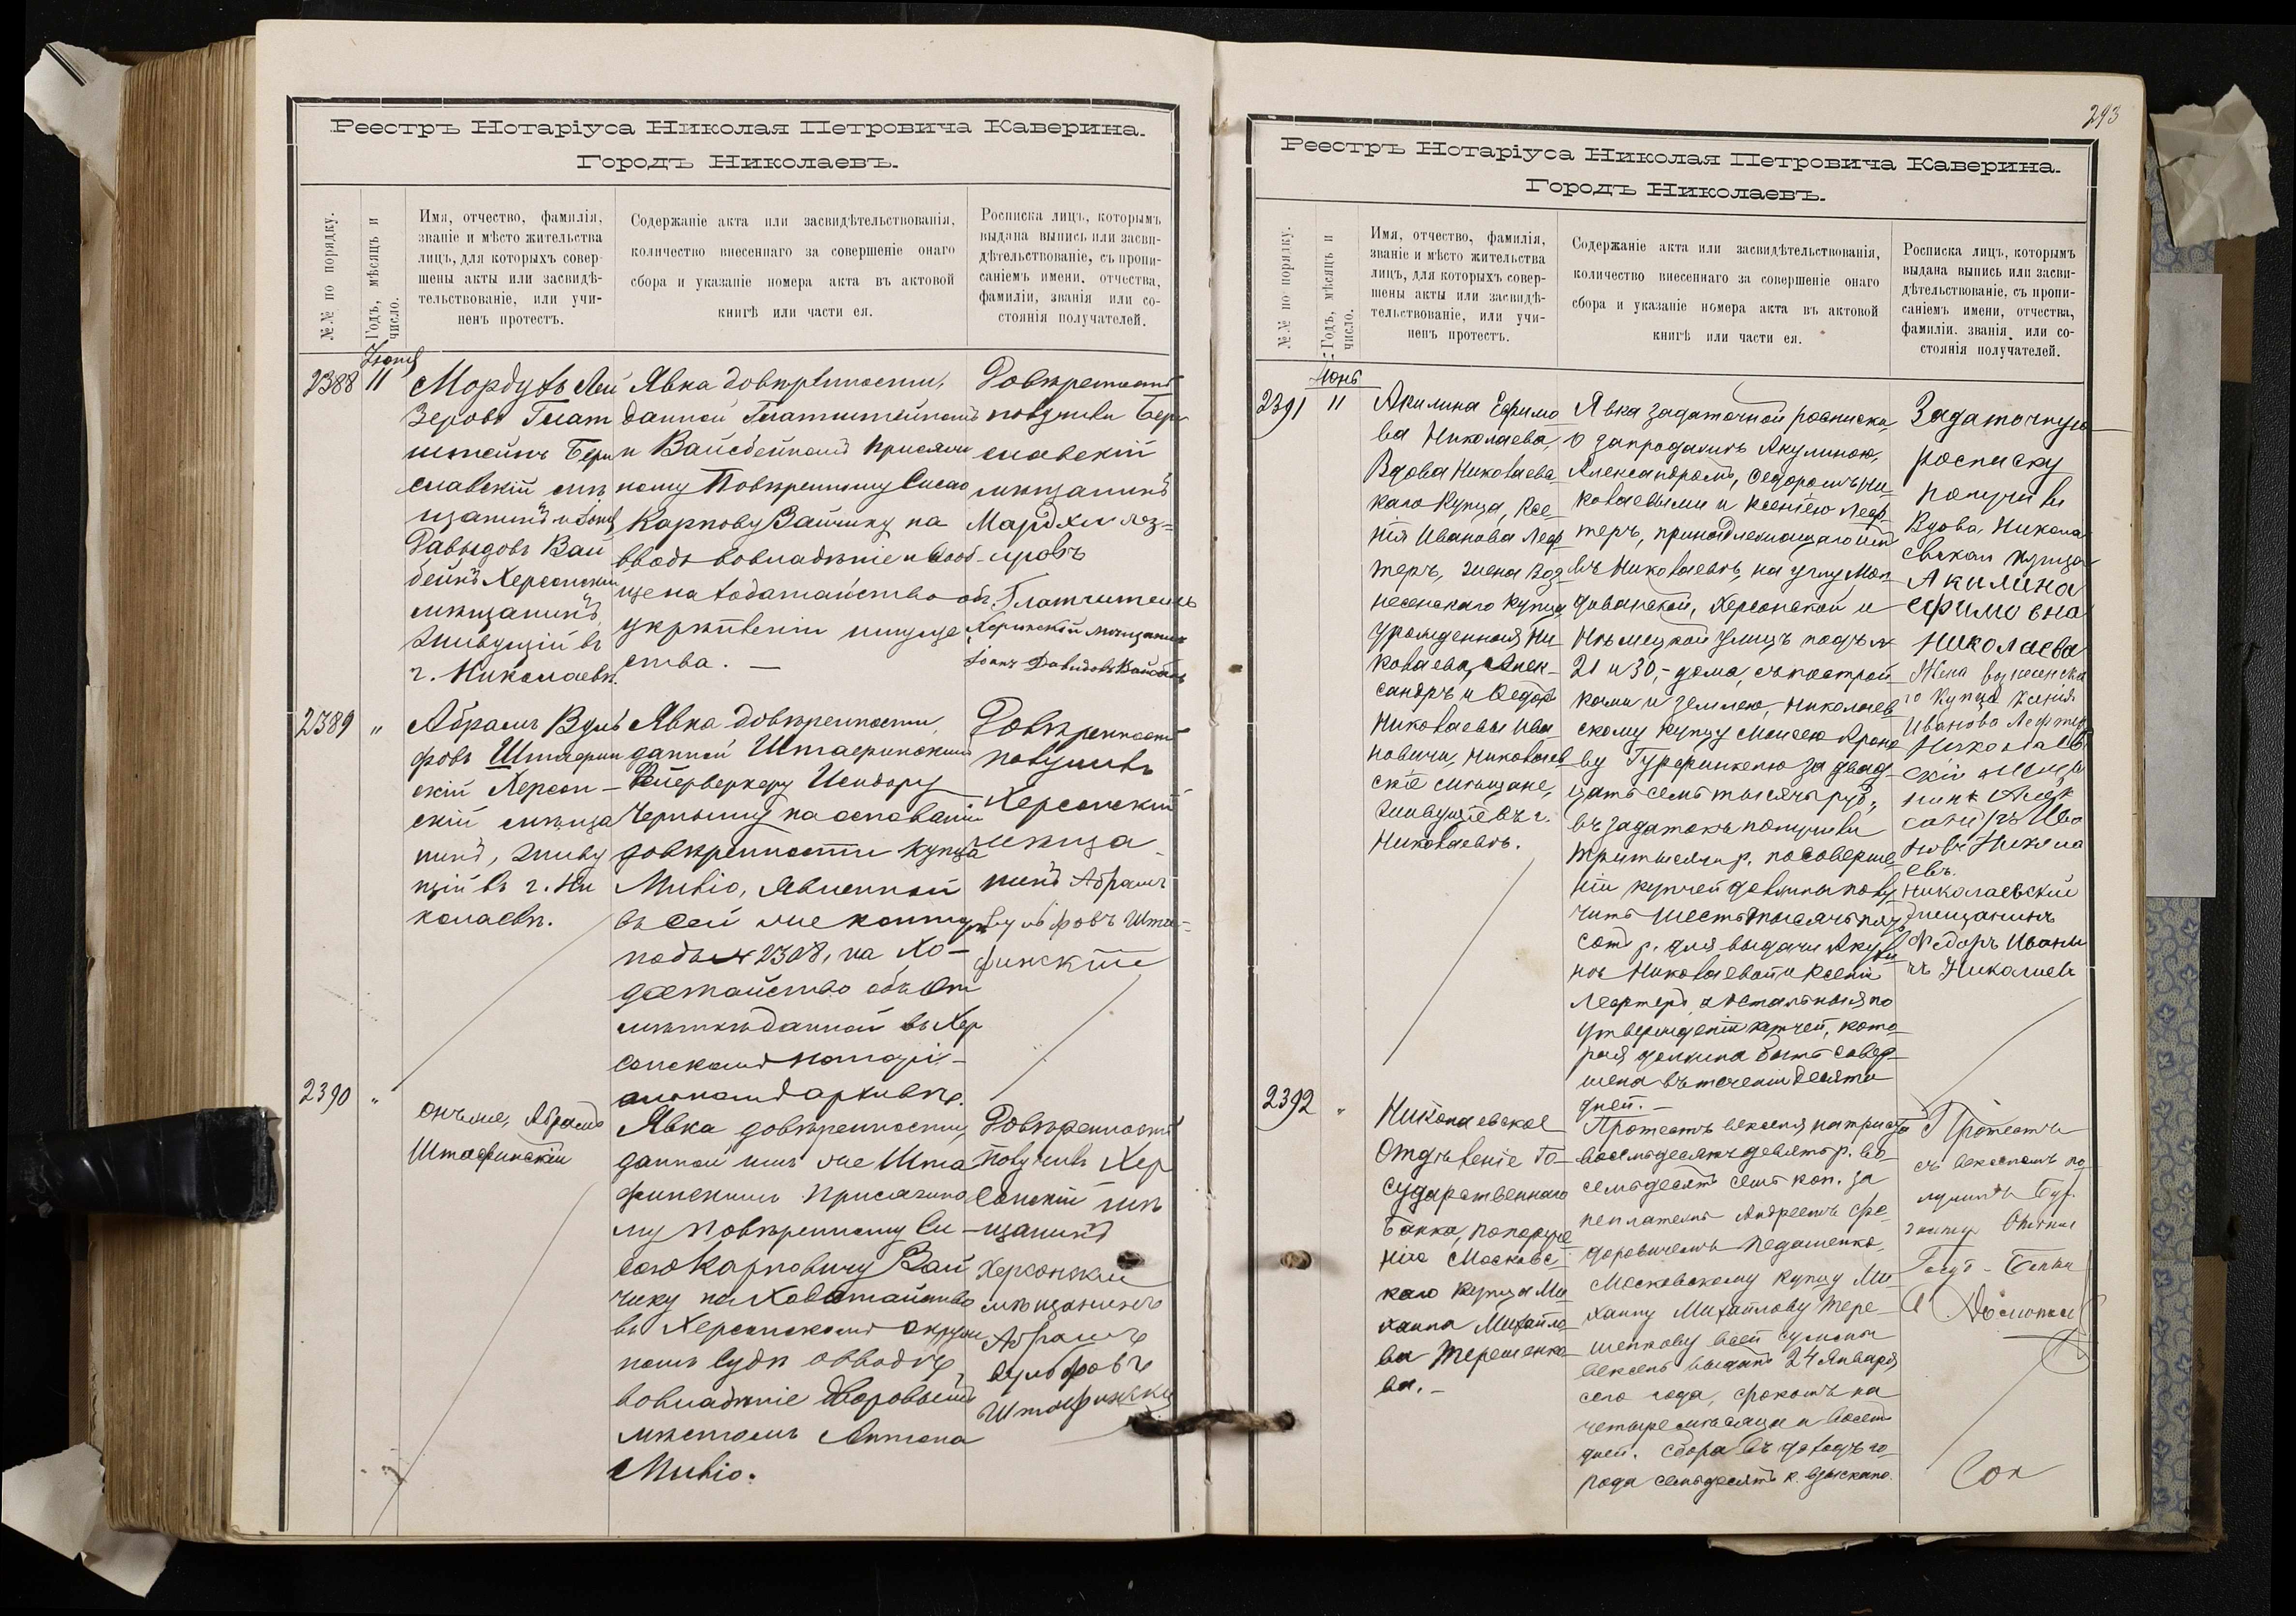 Реестръ Нотаріуса Николая Петровича Каверина.
Городъ Николаевъ.
№№ по порядку.
Годъ, мѣсяцъ и
число.
Имя, отчество, фамилія,
званіе и мѣсто жительства
лицъ, для которыхъ совер-
шены акты или засвидѣ-
тельствованіе, или учи-
ненъ протестъ.
Содержаніе акта или засвидѣтельствованія,
количество внесеннаго за совершеніе онаго
сбора и указаніе номера акта въ актовой
книгѣ или части ея.
Росписка лицъ, которымъ
выдана выпись или засви-
дѣтельствованіе, съ пропи-
саніемъ имени, отчества,
фамиліи, званія или со-
стоянія получателей.
Іюня
2388
11
Мордухъ Лей
зеровъ Глат
штейнъ Бери
славскій мѣ
щанинъ и
Давыдовъ Вай
бейнъ Херсонскій
мѣщанинъ
живущій въ
г. Николаевѣ.
Явка довѣренности,
данной Глатштейномъ
и Вайсбейномъ Присяж
ному Повѣренному Сисою
Карпову Зайчику на
вводъ во владѣніе и вооб
ще на ходатайство объ
укрѣпленіи имуще
ства. —
Довѣренность
получили Бери
славскій
мѣщанинъ
Мардхи лез=
еровъ
Глатштейнъ
Херсонскій мѣщанинъ
Давидовъ
2389
"
Абрамъ Вуль
фовъ Штаерин
скій Херсон-
скій мѣща
нинъ, живу
щій въ г. Ни
колаевѣ.
Явка довѣренности
данной Штаеринскимъ
Фейерверкеру Исидору
Черному на основаніи
довѣренности купца
Мивіо, явленной
въ сей же конторѣ
подъ № 2308, на хо-
датайство объ от
мѣткѣ данной въ Хер
сонскомъ нотарі-
альномъ архивѣ.
Довѣренность
получилъ
Херсонскій
мѣща
нинъ Абрамъ
Вульфовъ Шта-
финскій
2390
"
Онъ же, Абрамъ
Штафинскій
Явка довѣренности,
данной имъ же Шта
финскимъ Присяжно
му Повѣренному Си-
сою Карповичу Зай
чику на ходатайство
въ Херсонскомъ Окруж
номъ Судѣ о вводѣ
во владѣніе дворовымъ
мѣстомъ Антона
Мивіо.
Довѣренность
получилъ Хер
сонскій мѣ
щанинъ
Херсонскій
мѣщанинъ
Абрамъ
Вульфовъ
Штафинскій
293
Реестръ Нотаріуса Николая Петровича Каверина.
Городъ Николаевъ.
№№ по порядку.
Годъ, мѣсяцъ и
число.
Имя, отчество, фамилія,
званіе и мѣсто жительства
лицъ, для которыхъ совер-
шены акты или засвидѣ-
тельствованіе, или учи-
ненъ протестъ.
Содержаніе акта или засвидѣтельствованія,
количество внесеннаго за совершеніе онаго
сбора и указаніе номера акта въ актовой
книгѣ или части ея.
Росписка лицъ, которымъ
выдана выпись или засви-
дѣтельствованіе, съ пропи-
саніемъ имени, отчества,
фамиліи, званія или со-
стоянія получателей.
Іюнь
2391
11
Акилина Ефимо
ва Николаева,
Вдова Николаевс
каго Купца, Ксе-
нія Иванова Леф
теръ, жена Воз
несенскаго Купца,
урожденная Ни
колаева, Алек-
сандръ и Ѳедоръ
Николаевы Ива
новичи, Николаев
скіе мѣщане,
живущіе въ г.
Николаевѣ.
Явка задаточной росписки,
о запродажѣ Акулиною,
Александромъ, Ѳедоромъ Ни-
колаевыми и Ксеніею Леф
теръ, принадлежащаго имъ
въ Николаевѣ, на углу Мол
даванской, Херсонской и
Нѣмецкой улицъ подъ №
21 и 30, - дома, съ построй
ками и землею, Николаев
скому купцу Моисею Ароно
ву Гурфинкелю за двад-
цать семь тысячъ руб.,
въ задатокъ получили
три тысячи р. по соверше
ніи купчей должны полу
чить шесть тысячъ пять
сотъ р. для выдачи Акули
нѣ Николаевой и Ксеніи
Лефтеръ, а остальныя по
утвержденіи купчей, кото-
рая должна быть совер-
шена въ теченіи десяти
дней. —
Задаточную
росписку
получили
Вдова Никола
евская купца
Акилина
Ефимовна
Николаева
Жена вознесенска
го купца Ксенія
Иванова Лефтеръ
Николаев
скій мѣща
нинъ Алек
сандръ Ива
новъ Никола
евъ.
Николаевскій
мѣщанинъ
Федоръ Ивани
чъ Николаевъ
2392
"
Николаевское
Отдѣленіе Го-
сударственнаго
Банка, по поруче
нію Московс-
каго Купца Ми
хаила Михайло
ва Терешенко
ва. -
Протестъ векселя на триста
восемьдесятъ девять р. во-
семьдесятъ семь коп. за
неплатежъ Андреемъ Фе-
доровичемъ Педашенко,
Московскому купцу Ми
хаилу Михайлову Тере-
шенкову всей суммы
вексель выданъ 24 Января
сего года, срокомъ на
четыре мѣсяца и восемь
дней. Сбора въ доходъ го-
рода семьдесятъ к. взыскано.
Протестъ
съ векселемъ по-
лучилъ Бух
галтеръ Отдѣл
Госуд. Банка